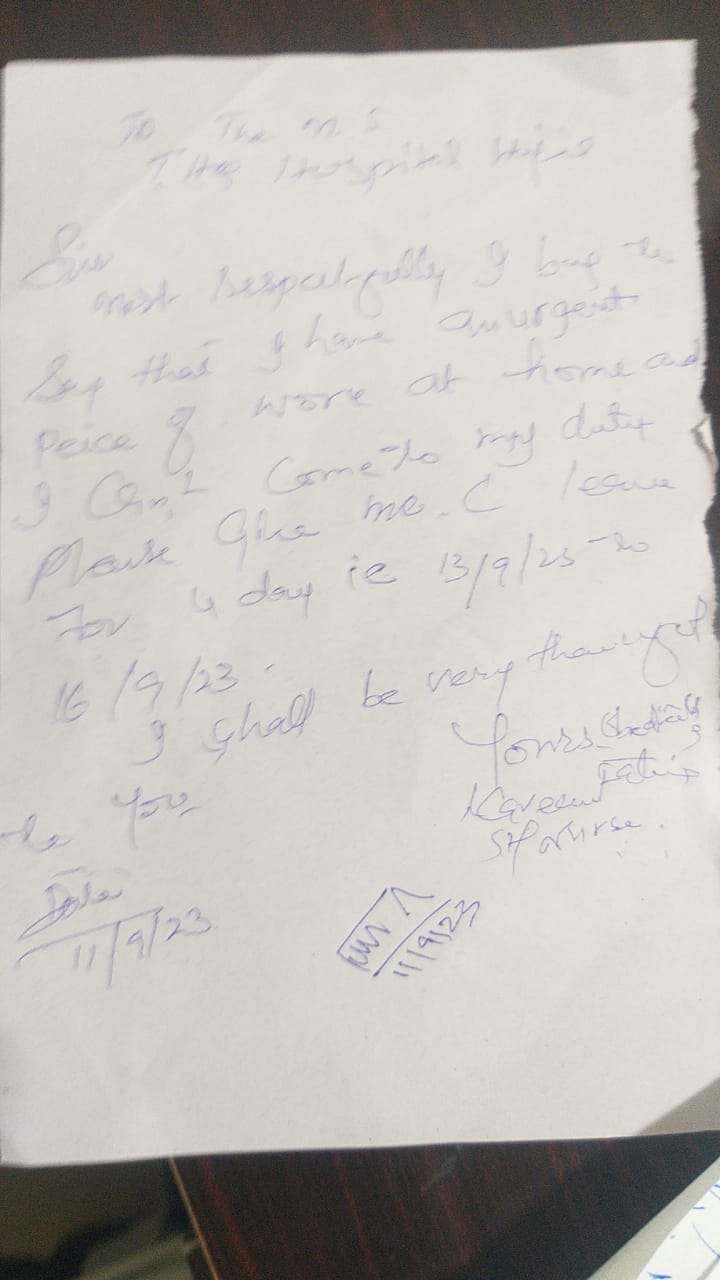 To The M.S
T.H.Q Hospital
Sir
most Respectfully I beg to
Say that I have an urgent
Peice of work at home and
I Can't Come to my duty
Please Give me. C leave
For 4 day ie 13/9/23 to
16/9/23.
I shall be very thankful
to you
Yours
Date
11/9/23
Nurse.
11/9/23